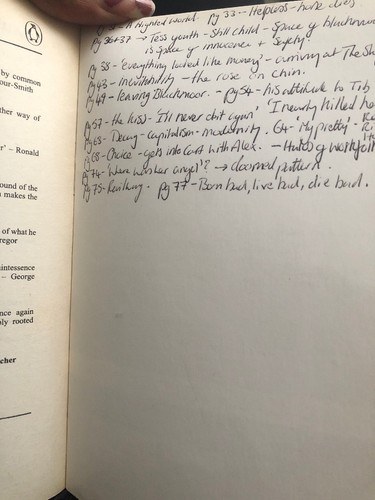 by common
our-Smith
ther way of
r' – Ronald
ound of the
n makes the
of what he
regor
uintessence
– George
nce again
ly rooted
cher
A blighted world. pg 33 - Helpless - horse dies
Pg 36+37 → Tess youth - Still child - Space of blackmoor
is space of innocence + safety'
Pg 38 - 'everything looked like money' - arriving at The
Pg 43 - Inevitability - the rose on chin.
Pg 49 - leaving Blackmoor. - pg 54 - his attitude to Tib
Pg 57 - the kiss - I'll never do it again' 'I nearly killed he
Pg 65 - Decay - capitalism - modernity. 64 - 'My pretty'
Pg 68 - Choice - gets into Cart with Alex.
Pg 74 - 'Where was her angel'? → doomed pattern.
Pg 75 - Railway. Pg 77 - Born bad, live bad, die bad.